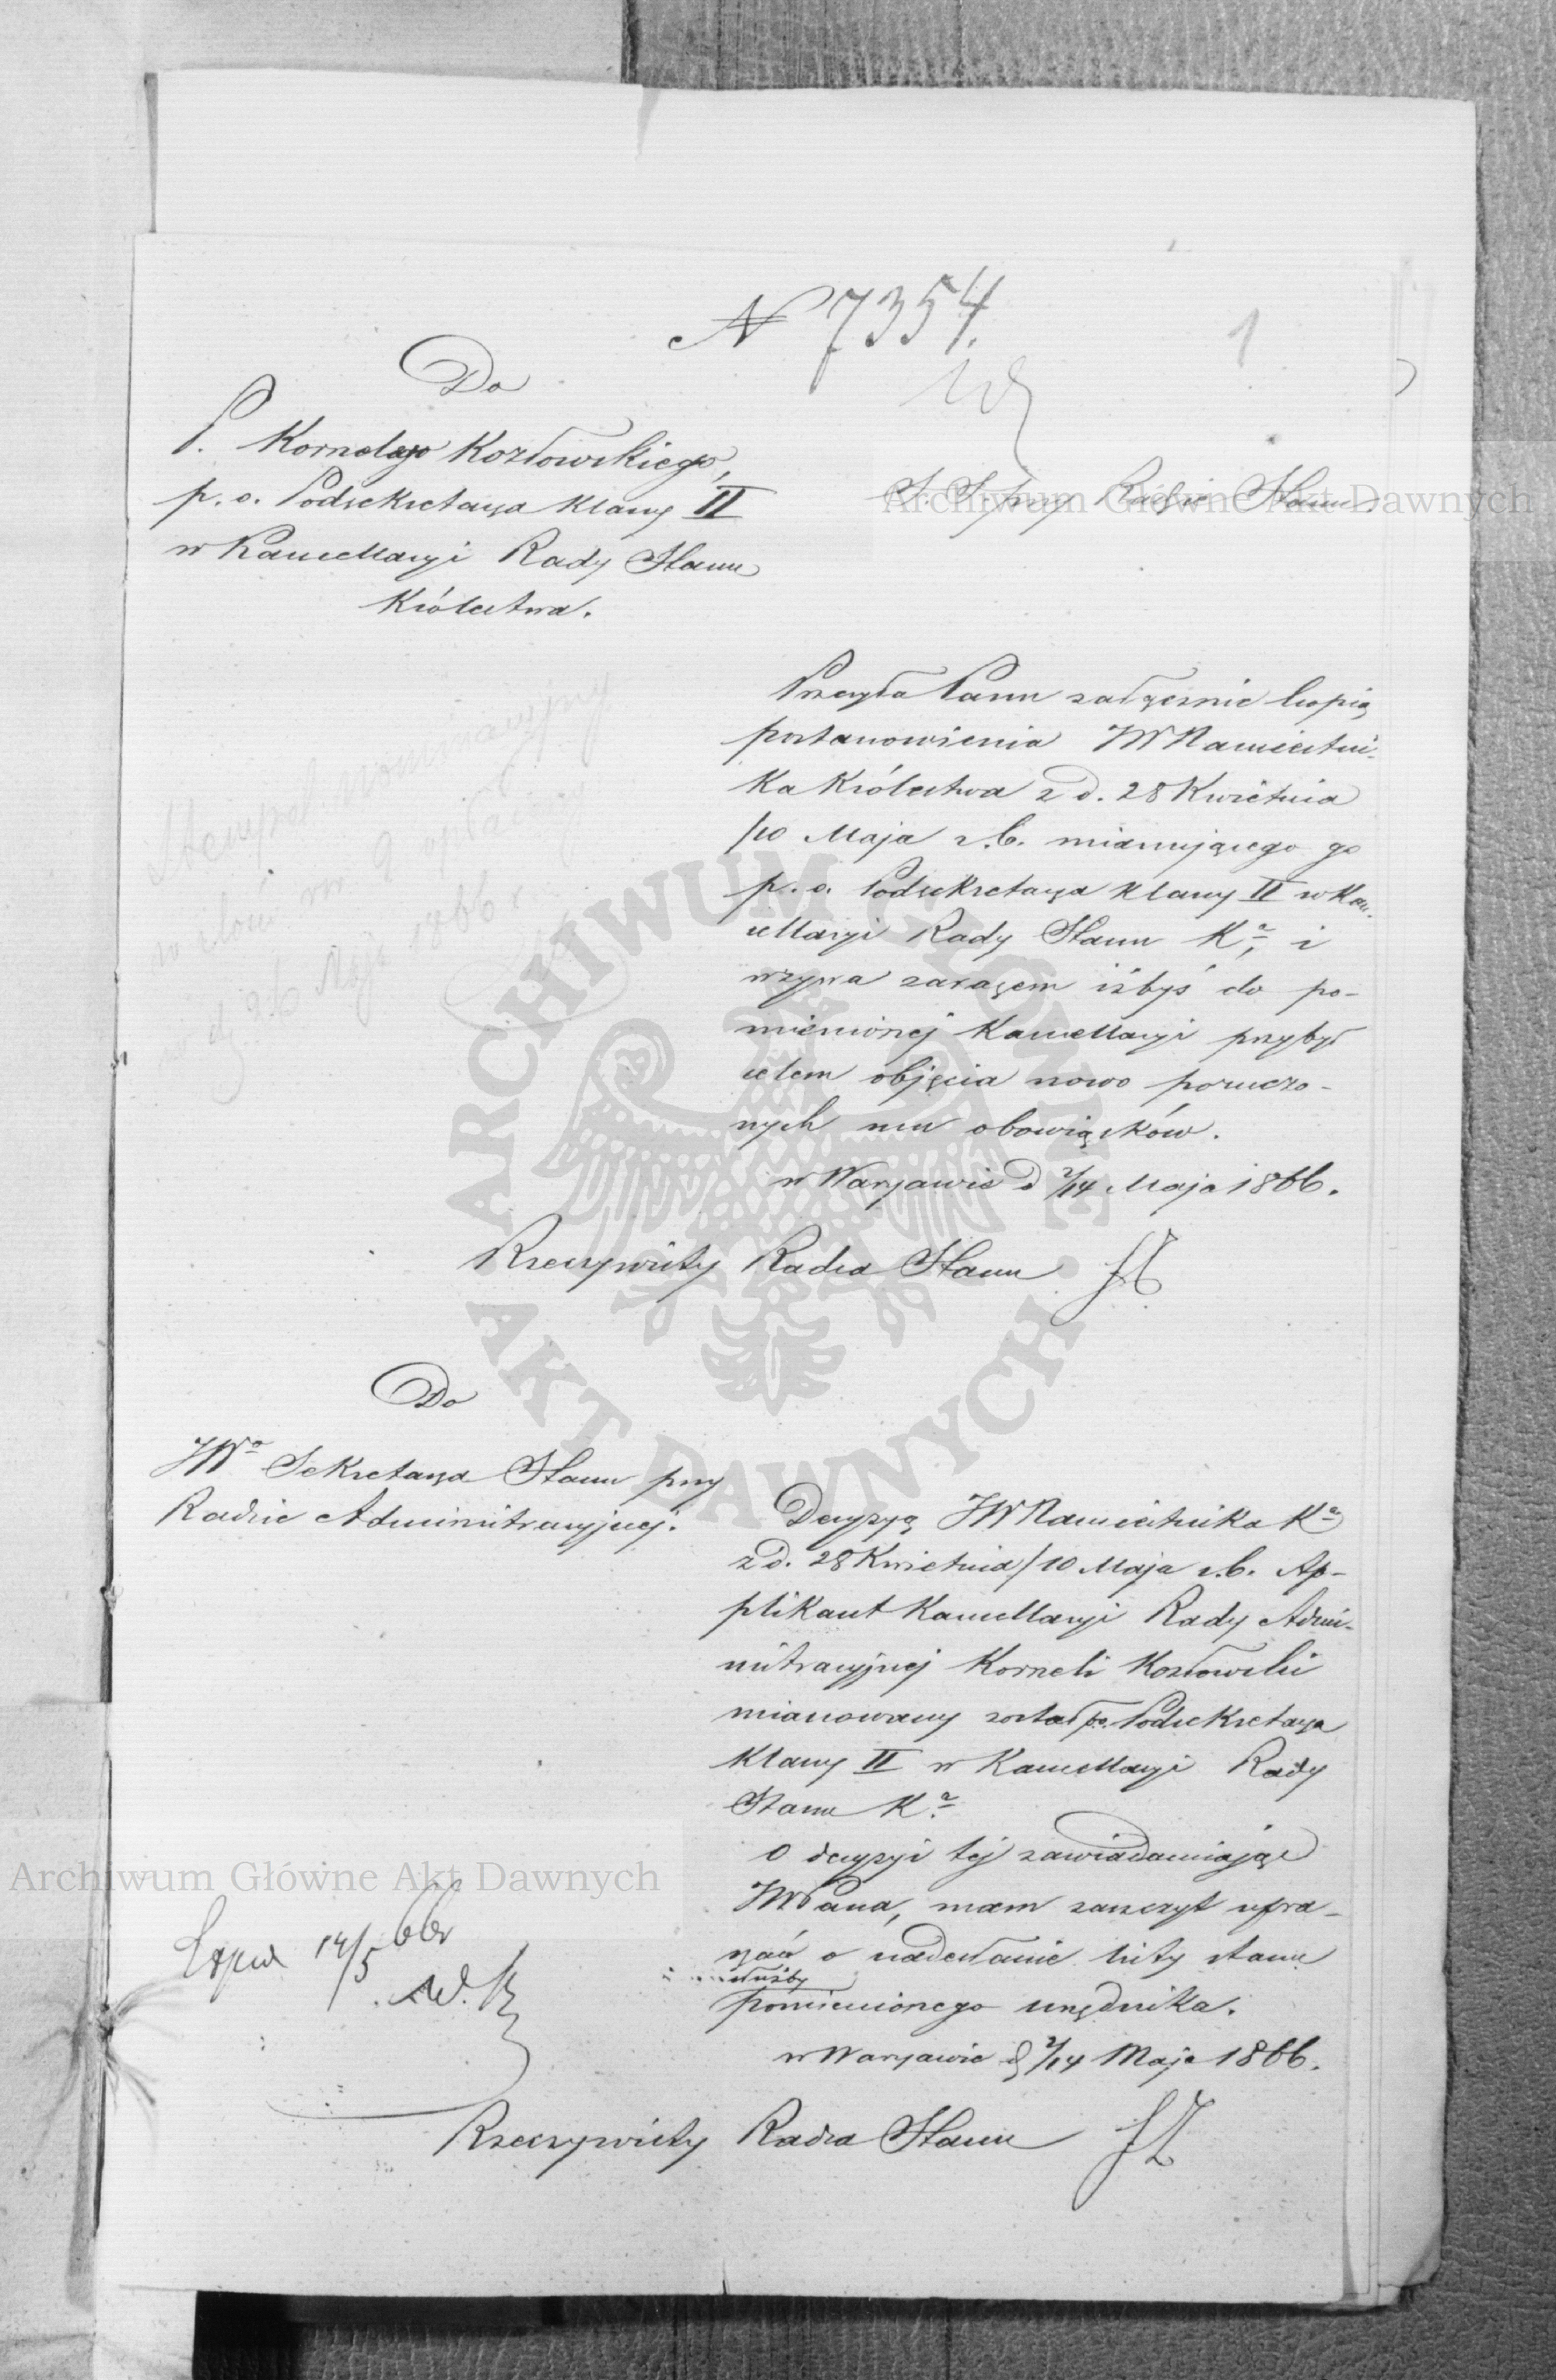 N 7354.
1
Do
P. Kornelego Kozłowskiego,
p. o. Podsekretarza klassy II
w Kancellaryi Rady Stanu
Królestwa.
S. S. przy Radzie Stanu
Archiwum Główne Akt Dawnych
Przesyła Panu załącznie kopią
postanowienia JW Namiestni-
ka Królestwa z d. 28 Kwietnia
/10 Maja r.b. mianującego go
p. o. Podsekretarza klassy II w Kan-
cellaryi Rady Stanu Kª, i
wzywa zarazem iżbyś do po-
mienionej Kancellaryi przybył
celem objęcia nowo poruczo-
nych mu obowiązków.
w Warszawie d 2/14 Maja 1866.
Rzeczywisty Radca Stanu
Stempel nominacyjny
d. 2/ Maja 1866 r
ARCHIWUM GŁÓWNE AKT DAWNYCH
Do
JWº Sekretarza Stanu przy
Radzie Administracyjnej.
Decyzyą JW Namiestnika Kª
z d. 28 Kwietnia/10 Maja r.b. Ap-
plikant Kancellaryi Rady Admi-
nistracyjnej Korneli Kozłowski
mianowany został p.o. Podsekretarza
klassy II w Kancellaryi Rady
Stanu Kª.
O decyzyi tej zawiadamiając
JWPana, mam zaszczyt upra-
szać o nadesłanie listy stanu
służby
pomienionego urzędnika.
w Warszawie d 2/14 Maja 1866.
Rzeczywisty Radca Stanu
Archiwum Główne Akt Dawnych
14/5 66r